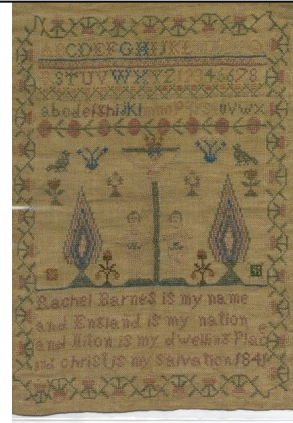 ABCDEFGHIJKL
STUVWXYZ12345678
abcdefghijkl
uvwx
Rachel Barnes is my name
and England is my nation
and Hilton is my dwelling Place
and christ is my salvation 184